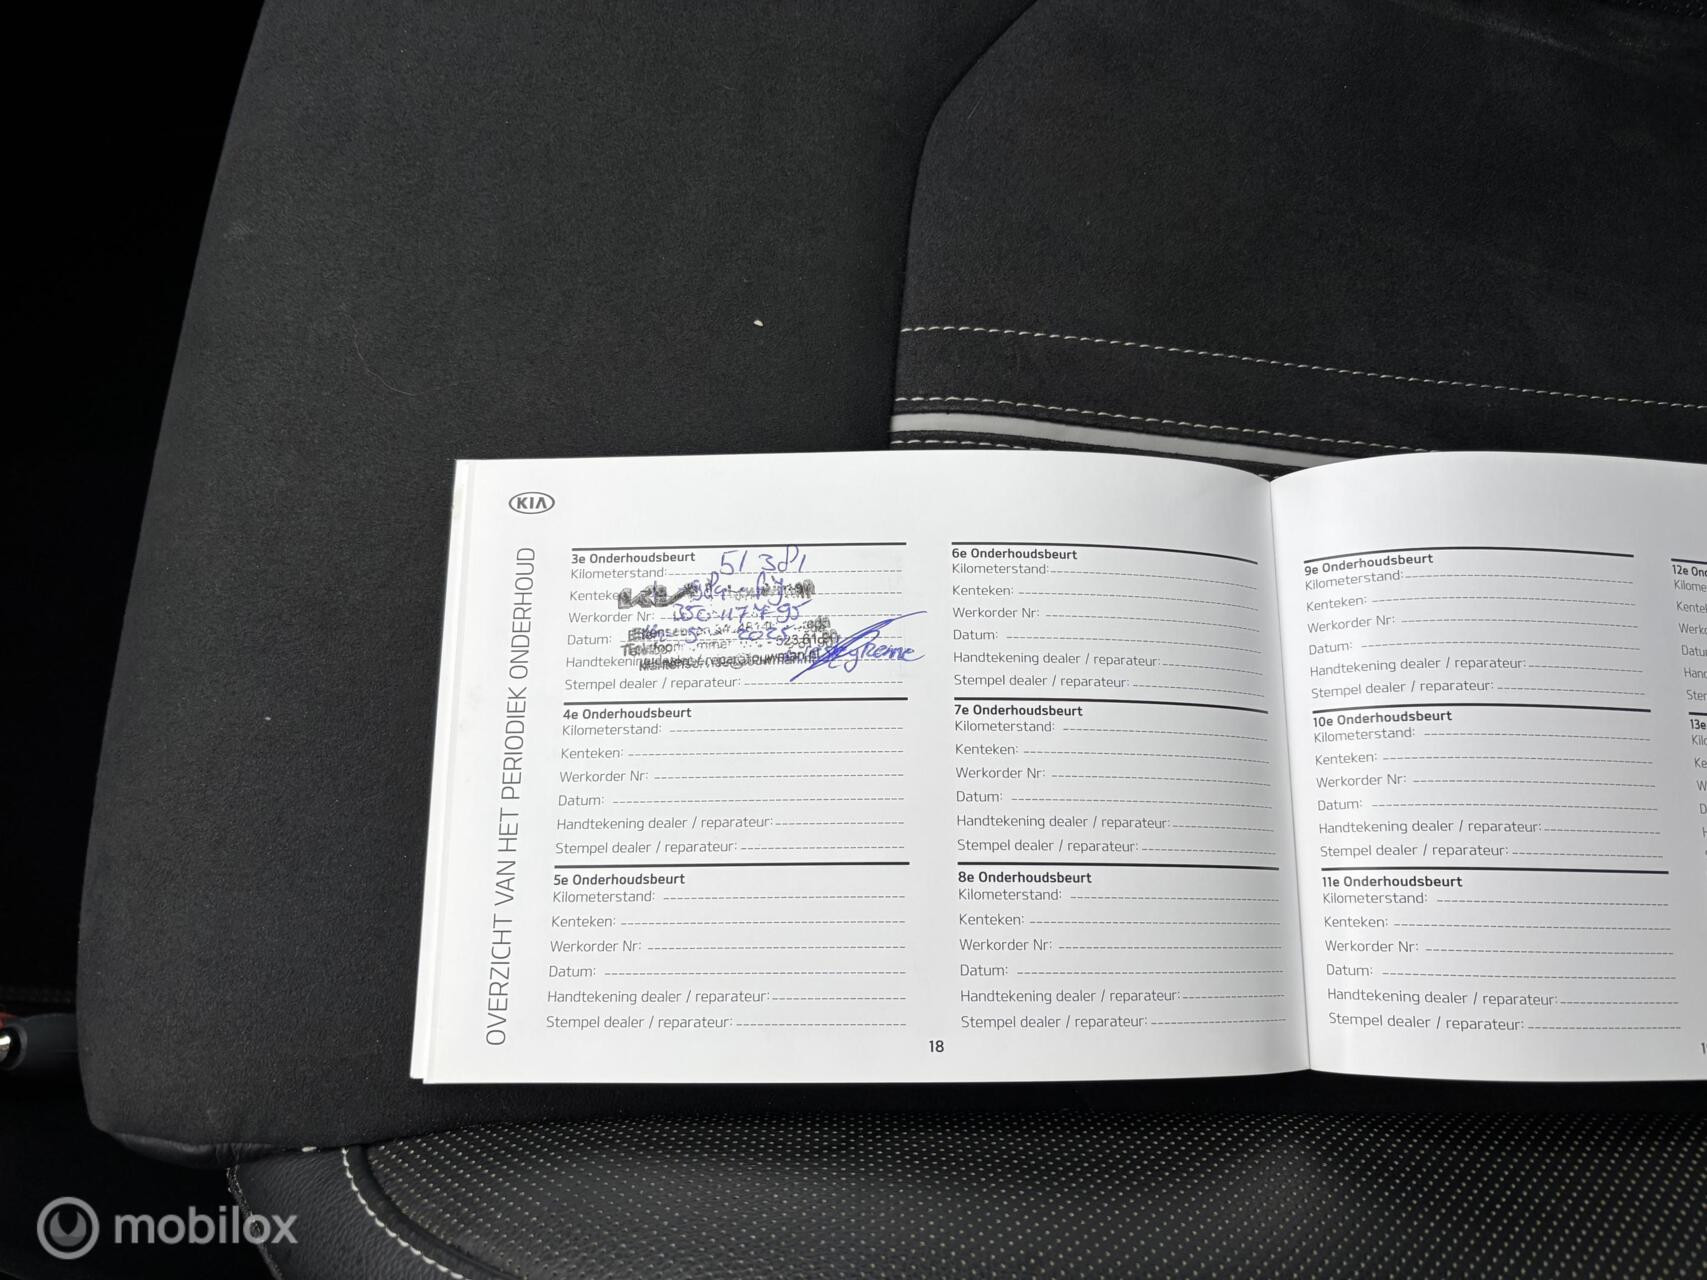 KIA
OVERZICHT VAN HET PERIODIEK ONDERHOUD
3e Onderhoudsbeurt
Kilometerstand: 51381
Kenteken:
Werkorder Nr:
Datum:
Handtekening
Stempel dealer / reparateur:
4e Onderhoudsbeurt
Kilometerstand:
Kenteken:
Werkorder Nr:
Datum:
Handtekening dealer / reparateur:
Stempel dealer / reparateur:
5e Onderhoudsbeurt
Kilometerstand:
Kenteken:
Werkorder Nr:
Datum:
Handtekening dealer / reparateur:
Stempel dealer / reparateur:
6e Onderhoudsbeurt
Kilometerstand:
Kenteken:
Werkorder Nr:
Datum:
Handtekening dealer / reparateur:
Stempel dealer / reparateur:
7e Onderhoudsbeurt
Kilometerstand:
Kenteken:
Werkorder Nr:
Datum:
Handtekening dealer / reparateur:
Stempel dealer / reparateur:
8e Onderhoudsbeurt
Kilometerstand:
Kenteken:
Werkorder Nr:
Datum:
Handtekening dealer / reparateur:
Stempel dealer / reparateur:
18
9e Onderhoudsbeurt
Kilometerstand:
Kenteken:
Werkorder Nr:
Datum:
Handtekening dealer / reparateur:
Stempel dealer / reparateur:
10e Onderhoudsbeurt
Kilometerstand:
Kenteken:
Werkorder Nr:
Datum:
Handtekening dealer / reparateur:
Stempel dealer / reparateur:
11e Onderhoudsbeurt
Kilometerstand:
Kenteken:
Werkorder Nr:
Datum:
Handtekening dealer / reparateur:
Stempel dealer / reparateur:
12e
13e
mobilox